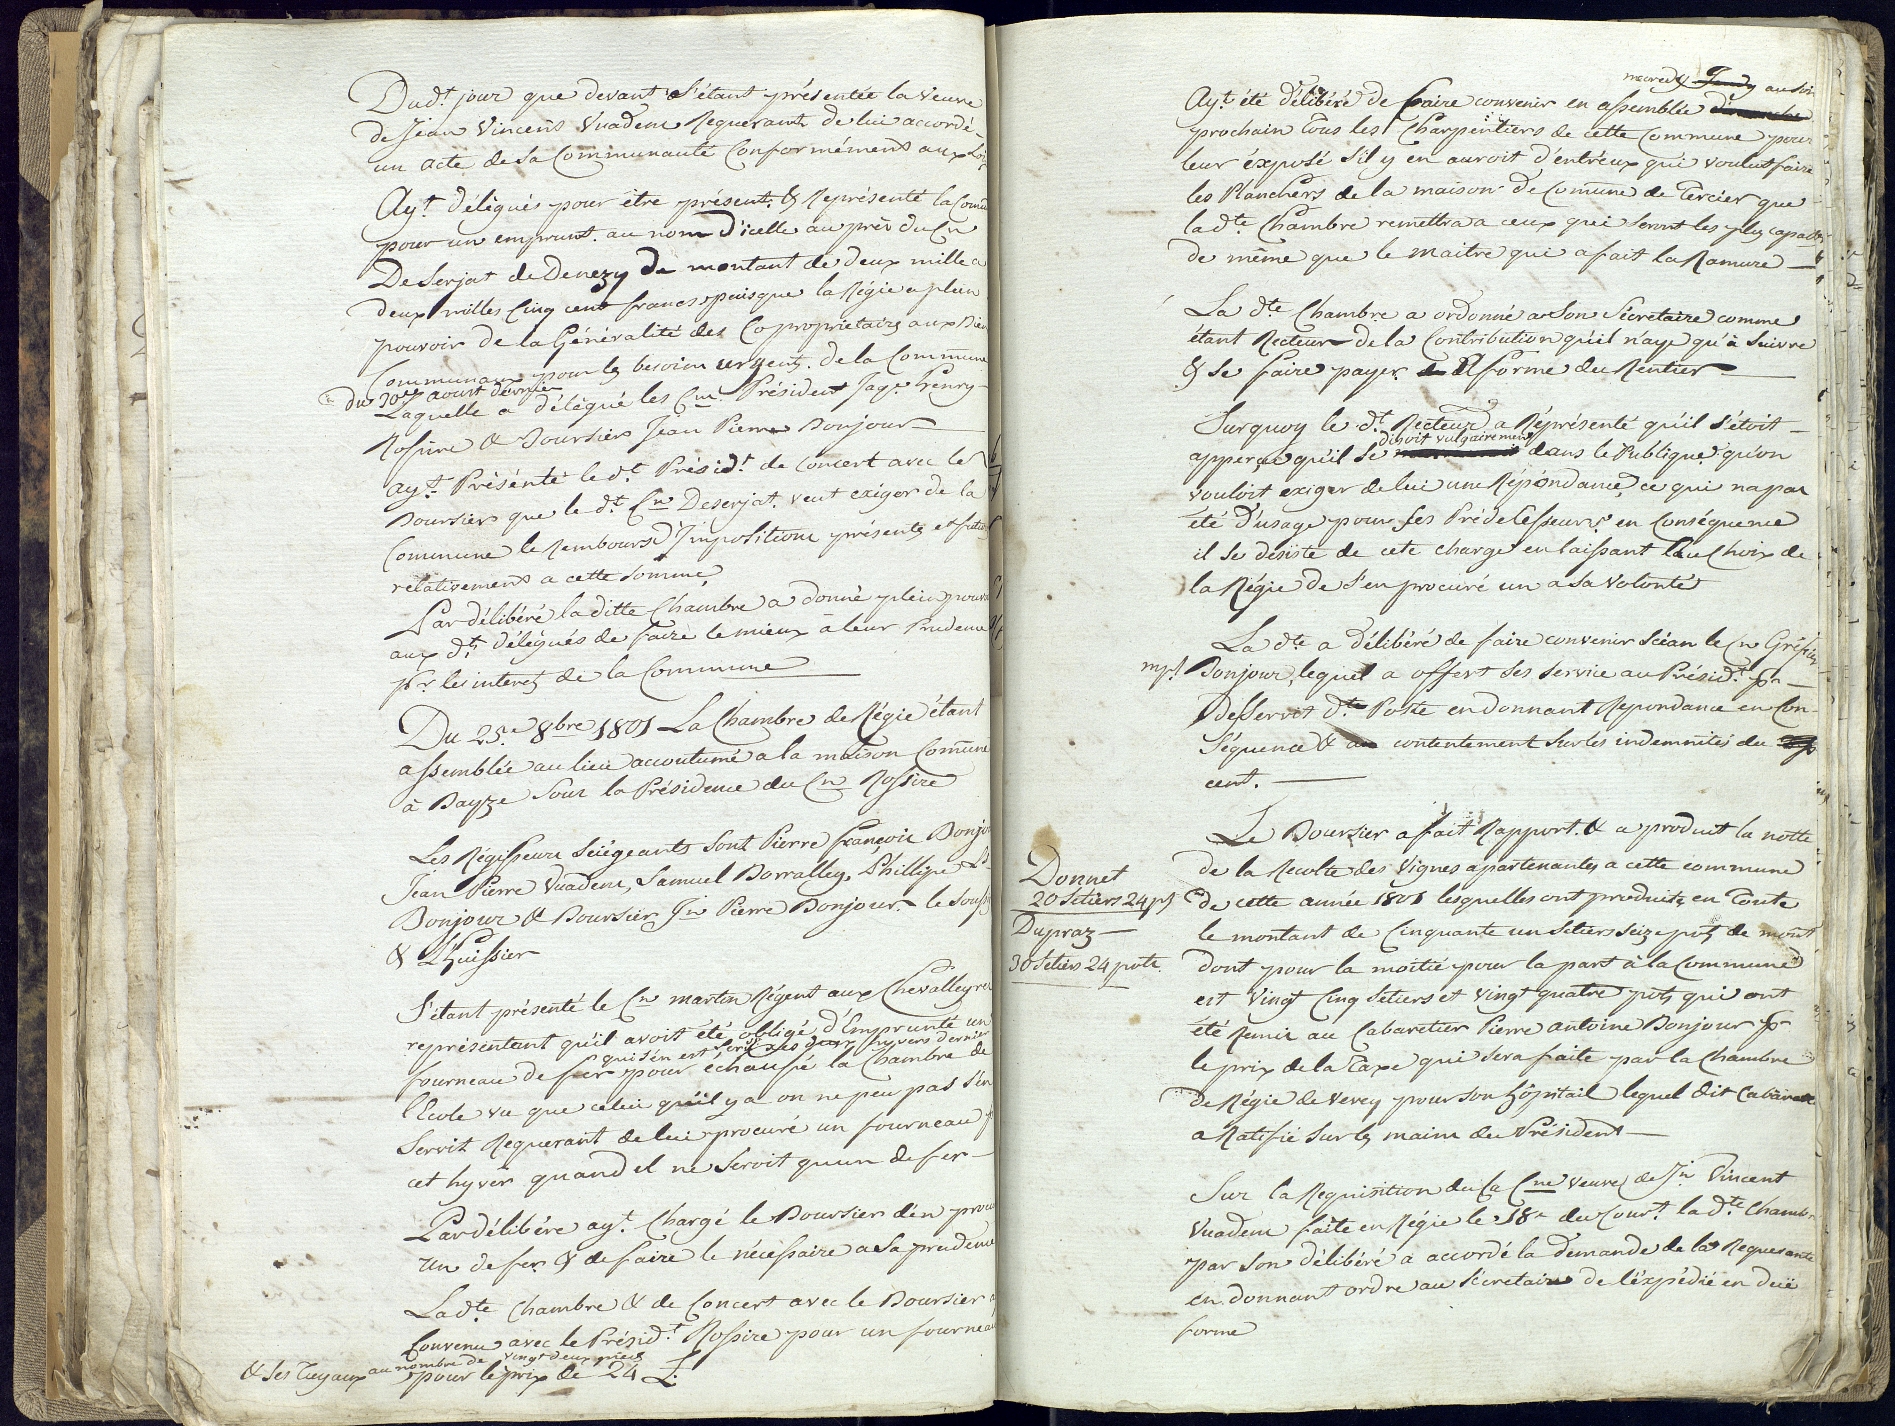 Du dt jour que devant s'étant présentée la veuve
de Jean Vincens Vuadens Requerants de lui accordé
un acte de sa Communauté Conformément aux Loix
Ayt délégués pour être présent. & Représenté la Comune
pour un emprunt. au nom d'icelle au près du Cn
Deserjat de Denezy de montant de deux mille a
deux milles Cinq cent francs, puisque la Régie a plein
pouvoir de la Généralité des Coproprietaires aux Biens
Communaux pour les besoins urgents. de la Commune
du 30e aoust dernier
Laquelle a délégué les Cns. Président Jaqe Henry
Rossire & Boursier Jean Pierre Bonjour
ayt Présenté le dt Présidt de Concert avec le
Boursier que le dt Cn Deserjat. veut exiger de la
Commune le Rembours d'Impositions présents et futurs
relativement a cette somme,
Par délibéré la ditte Chambre a donné plein pouvoir
aux dts délégués de faire le mieux à leur Prudence
pr les interets de la Commune
Du 25e 8bre 1801 La Chambre de Régie étant
assemblée au lieu accoutumé a la maison Commune
à Bayze sous la Présidence du Cn Rossire
Les Régisseurs seiégeants sont Pierre françois Bonjour
Jean Pierre Vuadens, Samuel Borralley, Phillipe
Bonjour & Boursier Jn Pierre Bonjour le souss
& L'huissier
S'étant présenté le Cn martin Régent aux Chevalleyres
représentant qu'il avoit été obligé d'Emprunté un
qui s'en est servi ces deux hyvers dernier
fourneau de fer pour échaufé la Chambre de
l'Ecole vu que celui qu'il y a on ne peu pas s'en
servit Requerant de lui procuré un fourneau p
cet hyver quand il ne seroit qu'un de fer
Par délibéré ayt. Chargé le Boursier d'en procu
un de fer & de faire le nécessaire a sa prudence
La dte Chambre & de Concert avec le Boursier a
Convenu avec le Présidt Rossire pour un fourneau
& ses Tuyaux au nombre de vingt deux pieds
pour le prix de 24 L.
mercredy Jeudy au soir
Ayt été délibéré de faire convenir en assemblée dimanche
prochain Tous les Charpentiers de cette Commune pour
leur éxposé s'il y en auroit d'entréux qui voulut faire
les Planchers de la maison de Comune de Tercier que
la dte Chambre remettra a ceux qui seront les plus capables
de même que le maitre qui a fait la Ramure
La dte Chambre a ordonné a son Sécretaire comme
étant Recteur de la Contribution qu'il n'aye qu'à suivre
& se faire payer a forme du Rentier
Surquoy le dt Recteur a Réprésenté qu'il s'étoit
disoit vulgairement
apperçu qu'il se dans le Publique qu'on
vouloit exiger de lui une Répondance, ce qui n'a pas
été d'usage pour ses Prédécesseurs en Conséquence
il se désiste de cete charge en laissant l'au Choix de
la Régie de s'en procuré un a sa volonté
La dte a délibéré de faire convenir séean le Cn Gréfier
Bonjour, lequel a offert ses service au Présidt. pr
desservit dte Poste en donnant Répondance en Con
séquence & contentement sur les indemnités du
cent.
Le Boursier a fait Rapport. & a produit la notte
de la Recolte des Vignes apartenantes a cette commune
de cette année 1801 lesquelles ont produits en Toute
le montant de Cinquante un setiers seize pots de mout
dont pour la moitié pour la part à la Commune
est Vingt Cinq setiers et vingt quatre pots qui ont
été Remis au Cabaretier Pierre antoine Bonjour pr
le prix de la Taxe qui sera faite par la Chambre
de Régie de Vevey pour son hôpitail lequel dit Cabaretier
a Ratifié sur les mains du Président
Donnet
20 setiers 24 pts
Dupraz
30 setiers 24 pots
Sur la Requisition du la Cne veuve de Jn Vincent
Vuadens faite en Régie le 18e du Court. la dte Chambre
par son délibéré a accordé la démande de la Requerante
en donnant ordre au sécretaire de l'expédié en deüe
forme